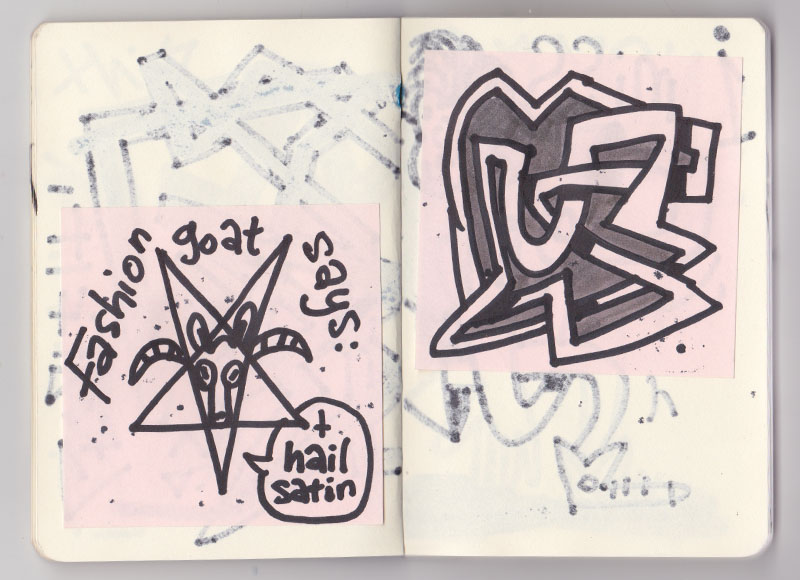 Fashion goat says:
hail
satin